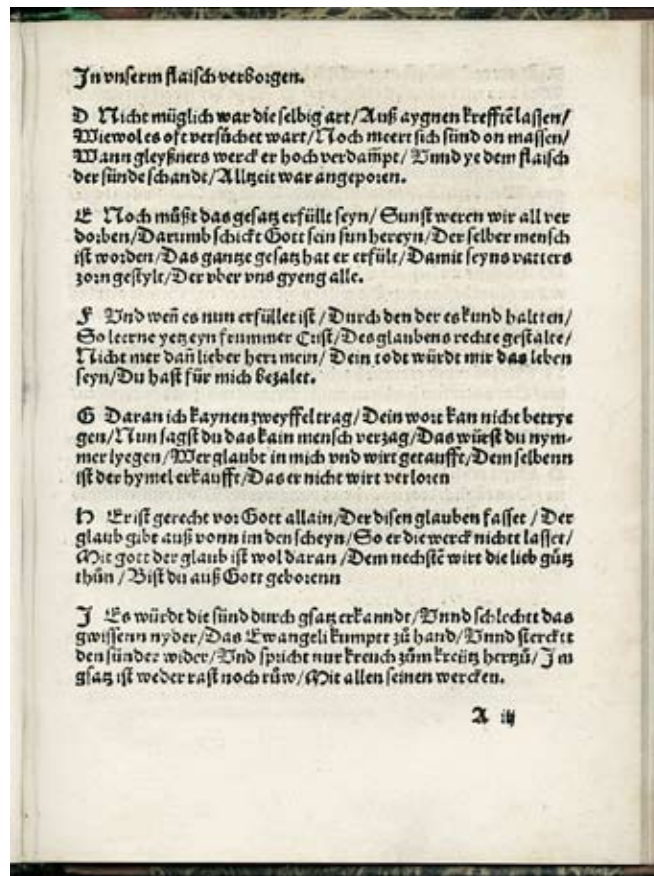 In vnserm flaisch verborgen.
D Nicht müglich war die selbig art/Auß aygnen krefftē lassen/
Wiewol es oft versůchet wart/Noch meert sich sünd on massen/
Wann gleyßners werck er hoch verdam̄pt/ Vnnd ye dem flaisch
der sünde schandt/Alltzeit war angeporen.
E Noch můßt das gesatz erfüllt seyn/ Sunst weren wir all ver
dorben/Darumb schickt Gott sein sun hereyn/Der selber mensch
ist worden/Das gantze gesatz hat er erfült/Damit seyns vatters
zorn gestylt/Der vber vns gyeng alle.
F Vnd weñ es nun erfüllet ist/Durch den der es kund haltten/
So leerne yetz eyn frummer Crist/Des glaubens rechte gestalte/
Nicht mer dañ lieber herr mein/ Dein todt würdt mir das leben
seyn/Du hast für mich bezalet.
G Daran ich kaynen zweyffel trag/Dein wort kan nicht betrye
gen/Nun sagst du das kain mensch verzag/Das würst du nym-
mer lyegen/Wer glaubt in mich vnd wirt getaufft/Dem selbenn
ist der hymel erkaufft/Das er nicht wirt verloren
H Er ist gerecht vor Gott allain/Der disen glauben fasset / Der
glaub gibt auß vonn im den scheyn/So er die werck nichtt lasset/
Mit gott der glaub ist wol daran /Dem nechstē wirt die lieb gůtz
thůn /Bist du auß Gott geborenn
J Es würdt die sünd durch gsatz erkanndt/Vnnd schlechtt das
gwissenn nyder/Das Ewangeli kumptt zů hand/Vnnd stercktt
den sünder wider/Vnd spricht nur kreuch zům kreütz hertzů/Im
gsatz ist weder rast noch růw/Mit allen seinen wercken.
A iij